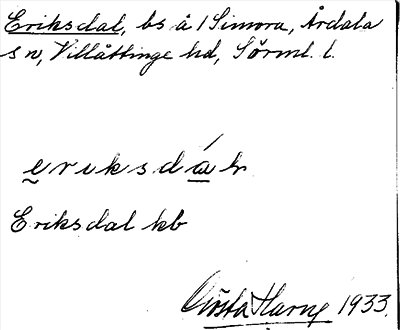 Eriksdal, bs å /Simora, Årdala
sn, Villåttinge hd, Sörml. l.
eriksdáw
Eriksdal kb
Gösta 1933.